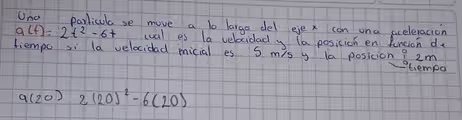 Una particula se mueve a lo largo del eje x con una aceleración
a(t)= 2t² - 6t cual es la velocidad y la posición en función de
tiempo si la velocidad inicial es 5 m/s y la posición 2m
tiempo
a(20) 2(20)² - 6(20)